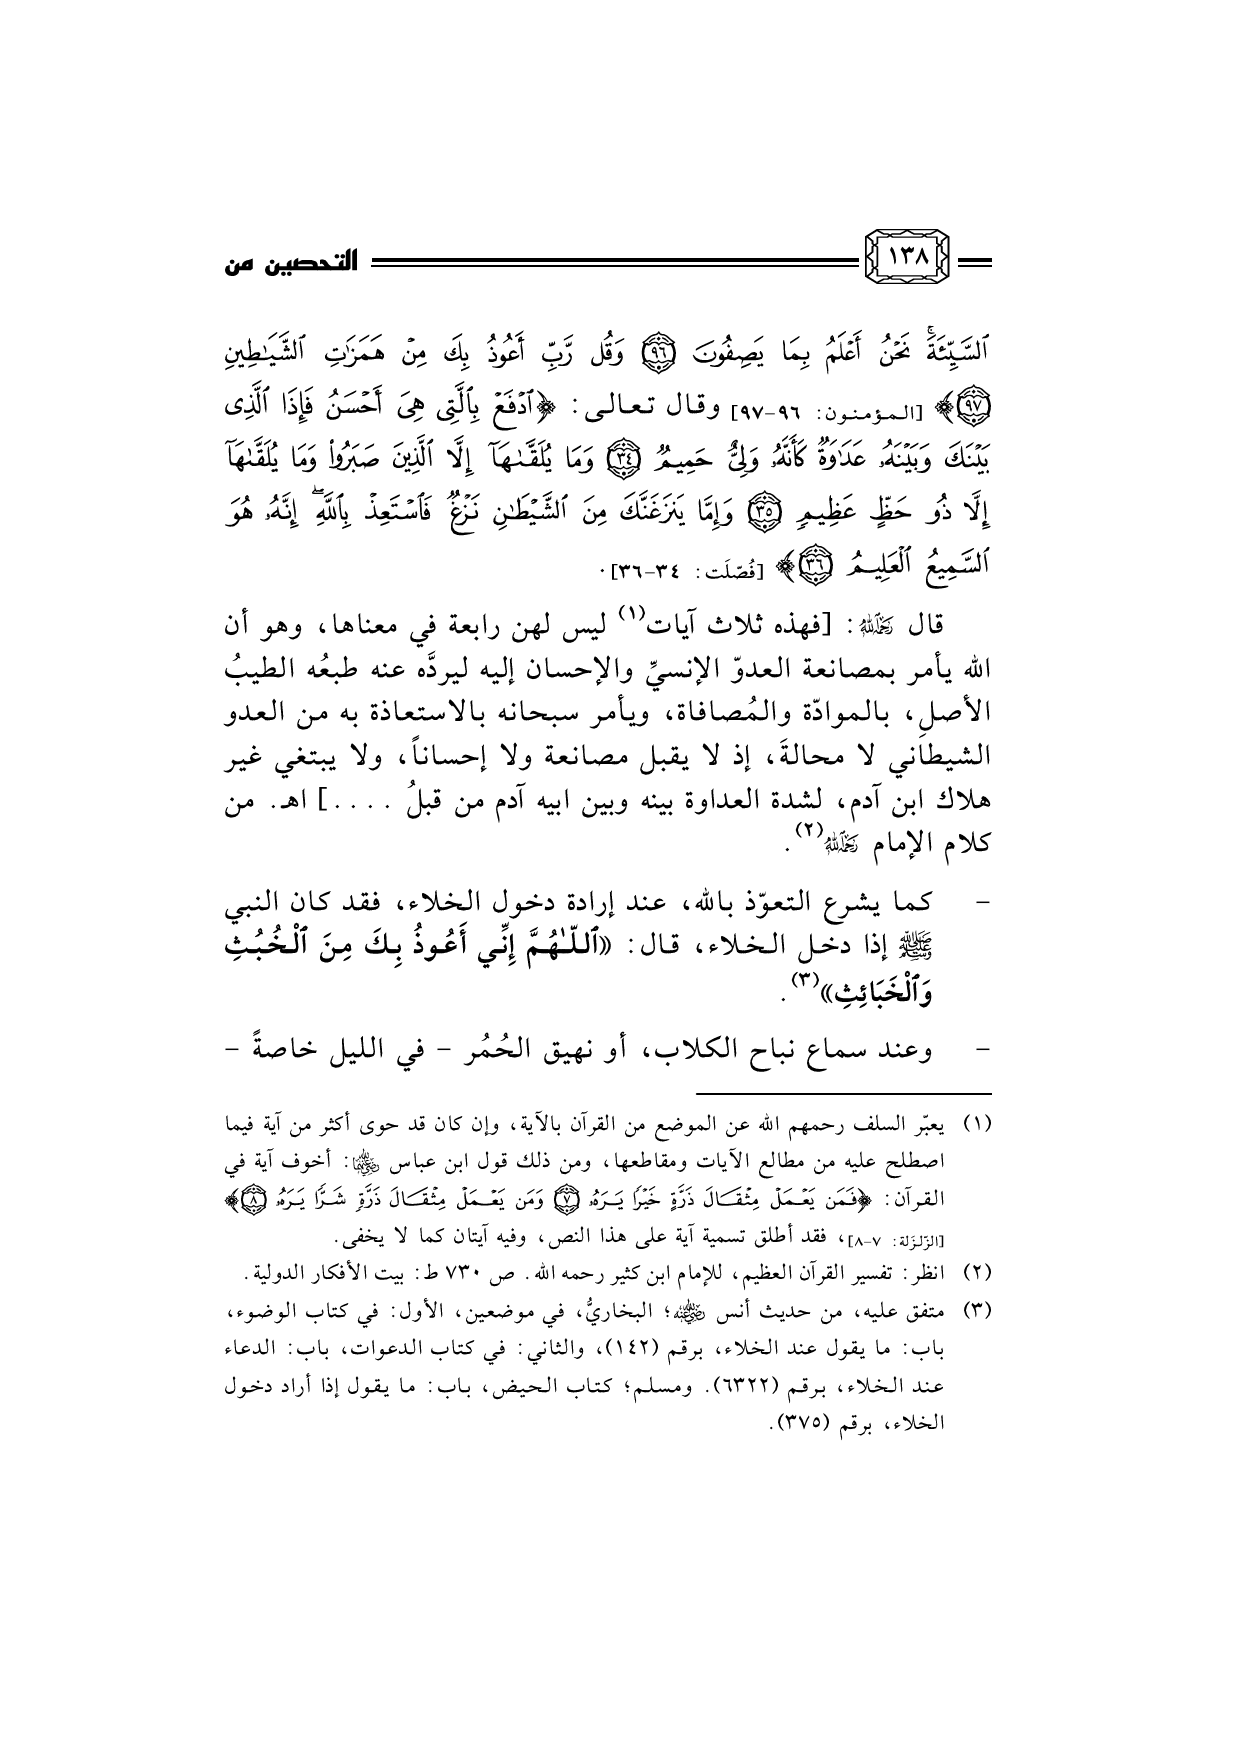 ١٣٨ التحصين من
ٱلسَّيِّئَةَۚ نَحۡنُ أَعۡلَمُ بِمَا يَصِفُونَ ٩٦ وَقُل رَّبِّ أَعُوذُ بِكَ مِنۡ هَمَزَٰتِ ٱلشَّيَٰطِينِ
٩٧﴾ [المؤمنون: ٩٦-٩٧] وقال تعالى: ﴿ٱدۡفَعۡ بِٱلَّتِى هِىَ أَحۡسَنُ فَإِذَا ٱلَّذِى
بَيۡنَكَ وَبَيۡنَهُۥ عَدَٰوَةٞ كَأَنَّهُۥ وَلِىٌّ حَمِيمٞ ٣٤ وَمَا يُلَقَّىٰهَآ إِلَّا ٱلَّذِينَ صَبَرُواْ وَمَا يُلَقَّىٰهَآ
إِلَّا ذُو حَظٍّ عَظِيمٖ ٣٥ وَإِمَّا يَنزَغَنَّكَ مِنَ ٱلشَّيۡطَٰنِ نَزۡغٞ فَٱسۡتَعِذۡ بِٱللَّهِۖ إِنَّهُۥ هُوَ
ٱلسَّمِيعُ ٱلۡعَلِيمُ ٣٦﴾ [فُصّلَت: ٣٤-٣٦].
قال رَحِمَهُ ٱللَّهُ: [فهذه ثلاث آيات(١) ليس لهن رابعة في معناها، وهو أن
الله يأمر بمصانعة العدوّ الإنسيِّ والإحسان إليه ليردَّه عنه طبعُه الطيبُ
الأصلِ، بالموادّة والمُصافاة، ويأمر سبحانه بالاستعاذة به من العدو
الشيطاني لا محالةَ، إذ لا يقبل مصانعة ولا إحساناً، ولا يبتغي غير
هلاك ابن آدم، لشدة العداوة بينه وبين ابيه آدم من قبلُ . . . .] اهـ. من
كلام الإمام رَحِمَهُ ٱللَّهُ(٢).
- كما يشرع التعوّذ بالله، عند إرادة دخول الخلاء، فقد كان النبي
ﷺ إذا دخل الخلاء، قال: «ٱللّٰهُمَّ إِنِّي أَعُوذُ بِكَ مِنَ ٱلْخُبُثِ
وَٱلْخَبَائِثِ»(٣).
- وعند سماع نباح الكلاب، أو نهيق الحُمُر – في الليل خاصةً –
(١) يعبّر السلف رحمهم الله عن الموضع من القرآن بالآية، وإن كان قد حوى أكثر من آية فيما
اصطلح عليه من مطالع الآيات ومقاطعها، ومن ذلك قول ابن عباس رضي الله عنهما: أخوف آية في
القرآن: ﴿فَمَن يَعۡمَلۡ مِثۡقَالَ ذَرَّةٍ خَيۡرٗا يَرَهُۥ ٧ وَمَن يَعۡمَلۡ مِثۡقَالَ ذَرَّةٖ شَرّٗا يَرَهُۥ ٨﴾
[الزّلزَلة: ٧-٨]، فقد أطلق تسمية آية على هذا النص، وفيه آيتان كما لا يخفى.
(٢) انظر: تفسير القرآن العظيم، للإمام ابن كثير رحمه الله. ص ٧٣٠ ط: بيت الأفكار الدولية.
(٣) متفق عليه، من حديث أنس رضي الله عنه؛ البخاريُّ، في موضعين، الأول: في كتاب الوضوء،
باب: ما يقول عند الخلاء، برقم (١٤٢)، والثاني: في كتاب الدعوات، باب: الدعاء
عند الخلاء، برقم (٦٣٢٢). ومسلم؛ كتاب الحيض، باب: ما يقول إذا أراد دخول
الخلاء، برقم (٣٧٥).